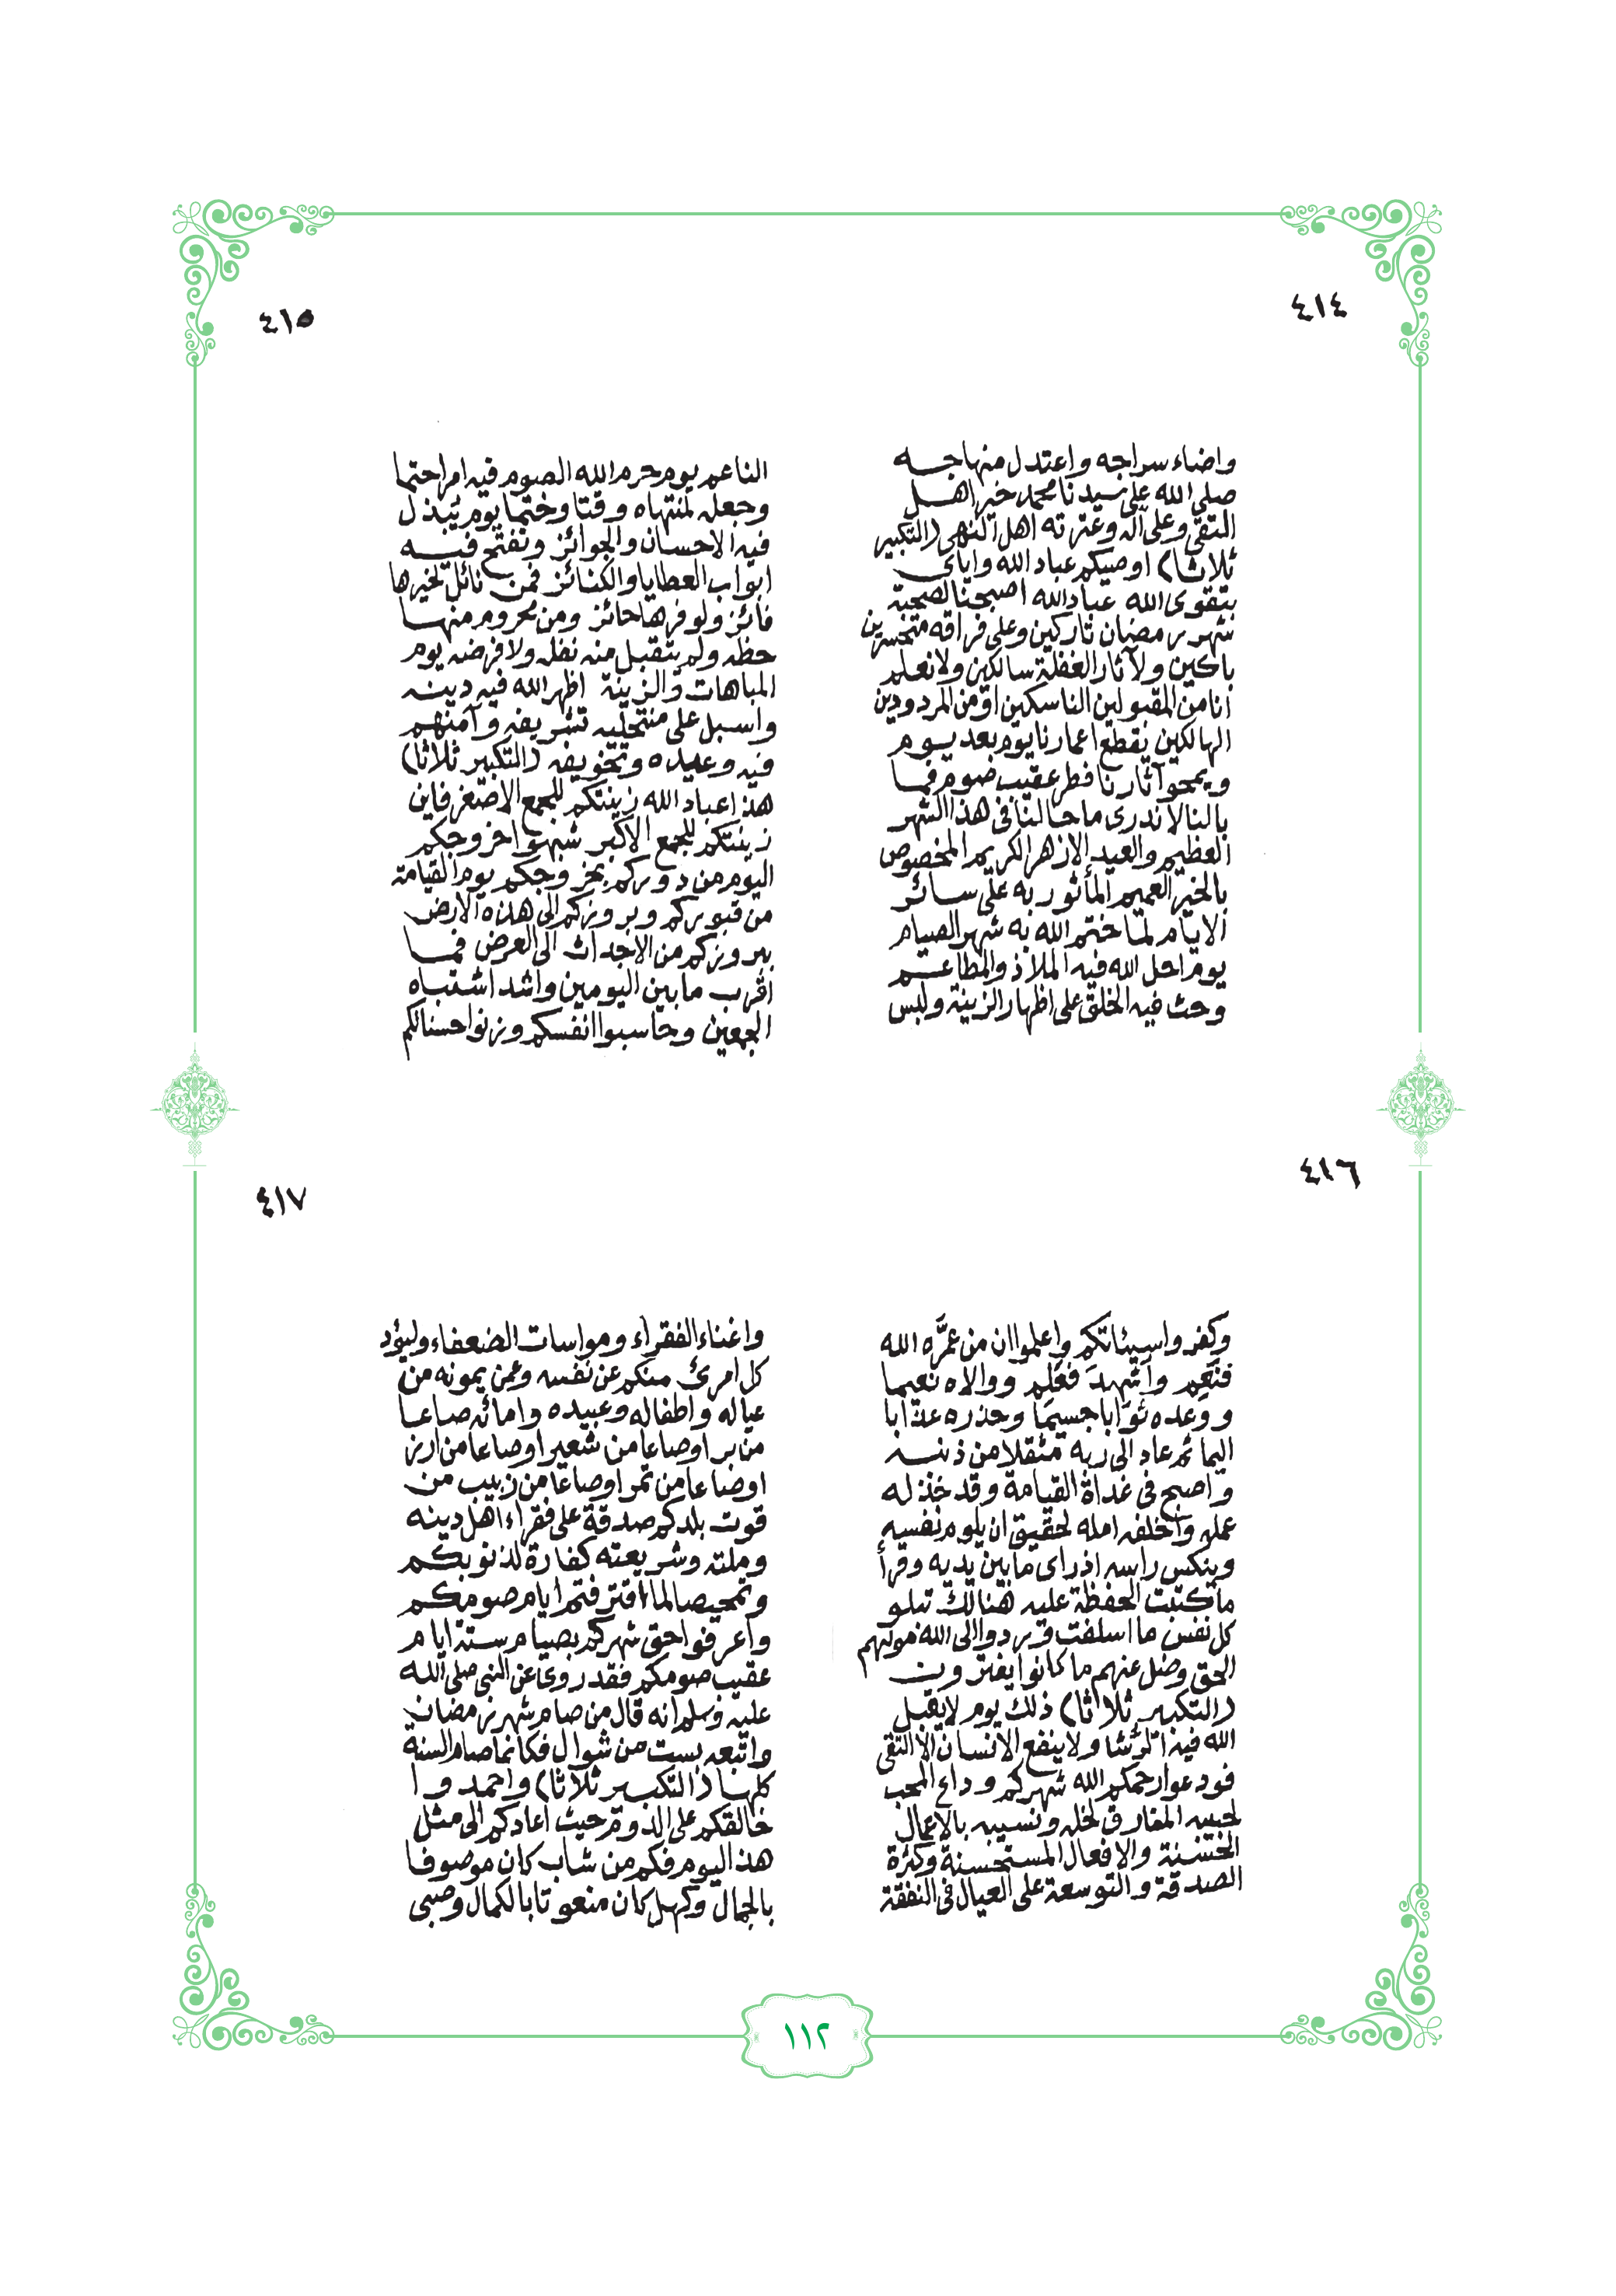 ٤١٤
واضاء سراجه واعتدل منهاجه
صلى الله على سيدنا محمد خير اهل
التقى وعلى آله وعترته اهل النهى (التكبير
ثلاثا) اوصيكم عباد الله واياى
بتقوى الله عباد الله اصبحنا لصحبة
شهر رمضان تاركين وعلى فراقه متحسرين
باكين ولآثار الغفلة سالكين ولا نعلم
انا من المقبولين الناسكين او من المردودين
الهالكين يقطع اعمارنا يوم بعد يوم
ويمحو آثارنا فطر عقيب صوم فما
بالنا لا ندرى ما حالنا فى هذا الشهر
العظيم والعيد الازهر الكريم المخصوص
بالخير العميم المأثور به على سائر
الايام لما ختم الله به شهر الصيام
يوم احل الله فيه الملاذ والمطاعم
وحث فيه الخلق على اظهار الزينة ولبس
٤١٥
الناعم يوم حرم الله الصوم فيه امرا حتما
وجعله لمنتهاه وقتا وختما يوم يبذل
فيه الاحسان والجوائز وتفتح فيه
ابواب العطايا والكنائز فمن نائل لخيرها
فائز ولوفرها حائز ومن محروم منها
حظه ولم يتقبل منه نفله ولا فرضه يوم
المباهات والزينة اظهر الله فيه دينه
واسبل على منتحليه تشريفه وآمنهم
فيه وعيده وتخويفه (التكبير ثلاثا)
هذا عباد الله زينتكم للجمع الاصغر فاين
زينتكم للجمع الاكبر شبهوا خروجكم
اليوم من دوركم بخروجكم يوم القيامة
من قبوركم وبروزكم الى هذه الارض
ببروزكم من الاجداث الى العرض فما
اقرب ما بين اليومين واشد اشتباه
الجمعين وحاسبوا انفسكم وزنوا حسناتكم
٤١٦
وكفروا سيئاتكم واعلموا ان من عمَّره الله
فنعم واشهد فعلم ووالاه نعيما
ووعده ثوابا جسيما وحذره عذابا
اليما ثم عاد الى ربه مثقلا من ذنبه
واصبح فى غداة القيامة وقد خذله
عمله واخلفه امله لحقيق ان يلوم نفسه
وينكس راسه اذ راى ما بين يديه وقرأ
ما كتبت الحفظة عليه هنالك تبلو
كل نفس ما اسلفت وردوا الى الله موليهم
الحق وضل عنهم ما كانوا يفترون
(التكبير ثلاثا) ذلك يوم لا يقبل
الله فيه الرشا ولا ينفع الانسان الا التقى
فودعوا رحمكم الله شهركم وداع المحب
لحبيبه المفارق لخله ونسيبه بالاعمال
الحسنة والافعال المستحسنة وكثرة
الصدقة والتوسعة على العيال فى النفقة
٤١٧
واغناء الفقراء ومواسات الضعفاء وليؤد
كل امرئ منكم عن نفسه وعمن يمونه من
عياله واطفاله وعبيده وامائه صاعا
من بر او صاعا من شعير او صاعا من ارز
او صاعا من تمر او صاعا من زبيب من
قوت بلدكم صدقة على فقراء اهل دينه
وملته وشريعته كفارة لذنوبكم
وتمحيصا لما اقترفتم ايام صومكم
واعرفوا حق شهركم بصيام ستة ايام
عقيب صومكم فقد روى عن النبى صلى الله
عليه وسلم انه قال من صام شهر رمضان
واتبعه بست من شوال فكانما صام السنة
كلها (التكبير ثلاثا) واحمدوا
خالقكم على الدوم حيث اعادكم الى مثل
هذا اليوم فكم من شاب كان موصوفا
بالجمال وكهل كان منعوتا بالكمال وصبى
١١٢